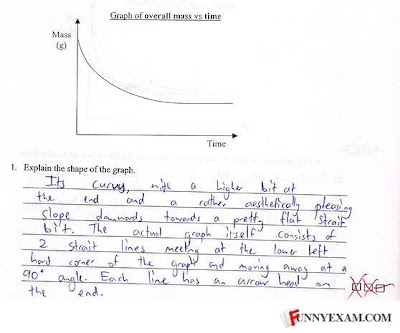 Graph of overall mass vs time
Mass
(g)
Time
1. Explain the shape of the graph.
Its curvy, with a higher bit at
the end and a rather aesthetically pleasing
slope downwards towards a pretty flat strait
bit. The actual graph itself consists of
2 strait lines meeting at the lower left
hand corner of the graph and moving away at a
90° angle. Each line has an arrow head on
the end.
FUNNYEXAM.COM